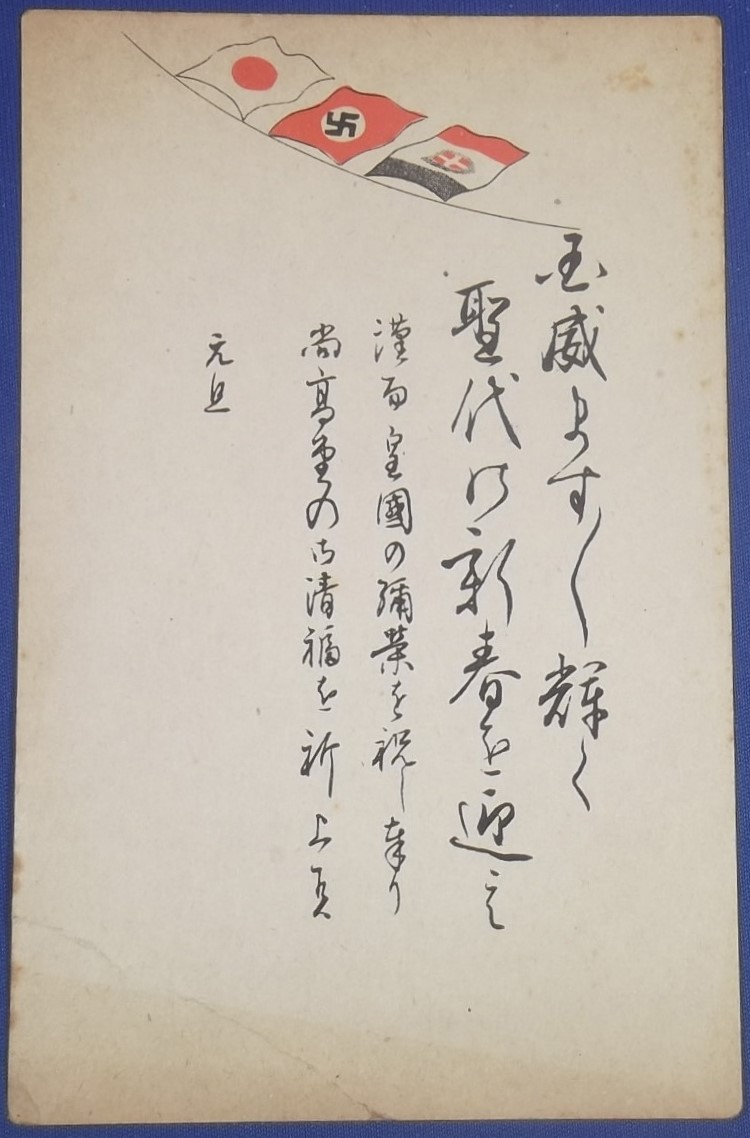 国威ます〱輝く
聖代の新春を迎え
謹而皇國の彌栄を祝し奉り
尚高堂の御清福を祈上候
元旦